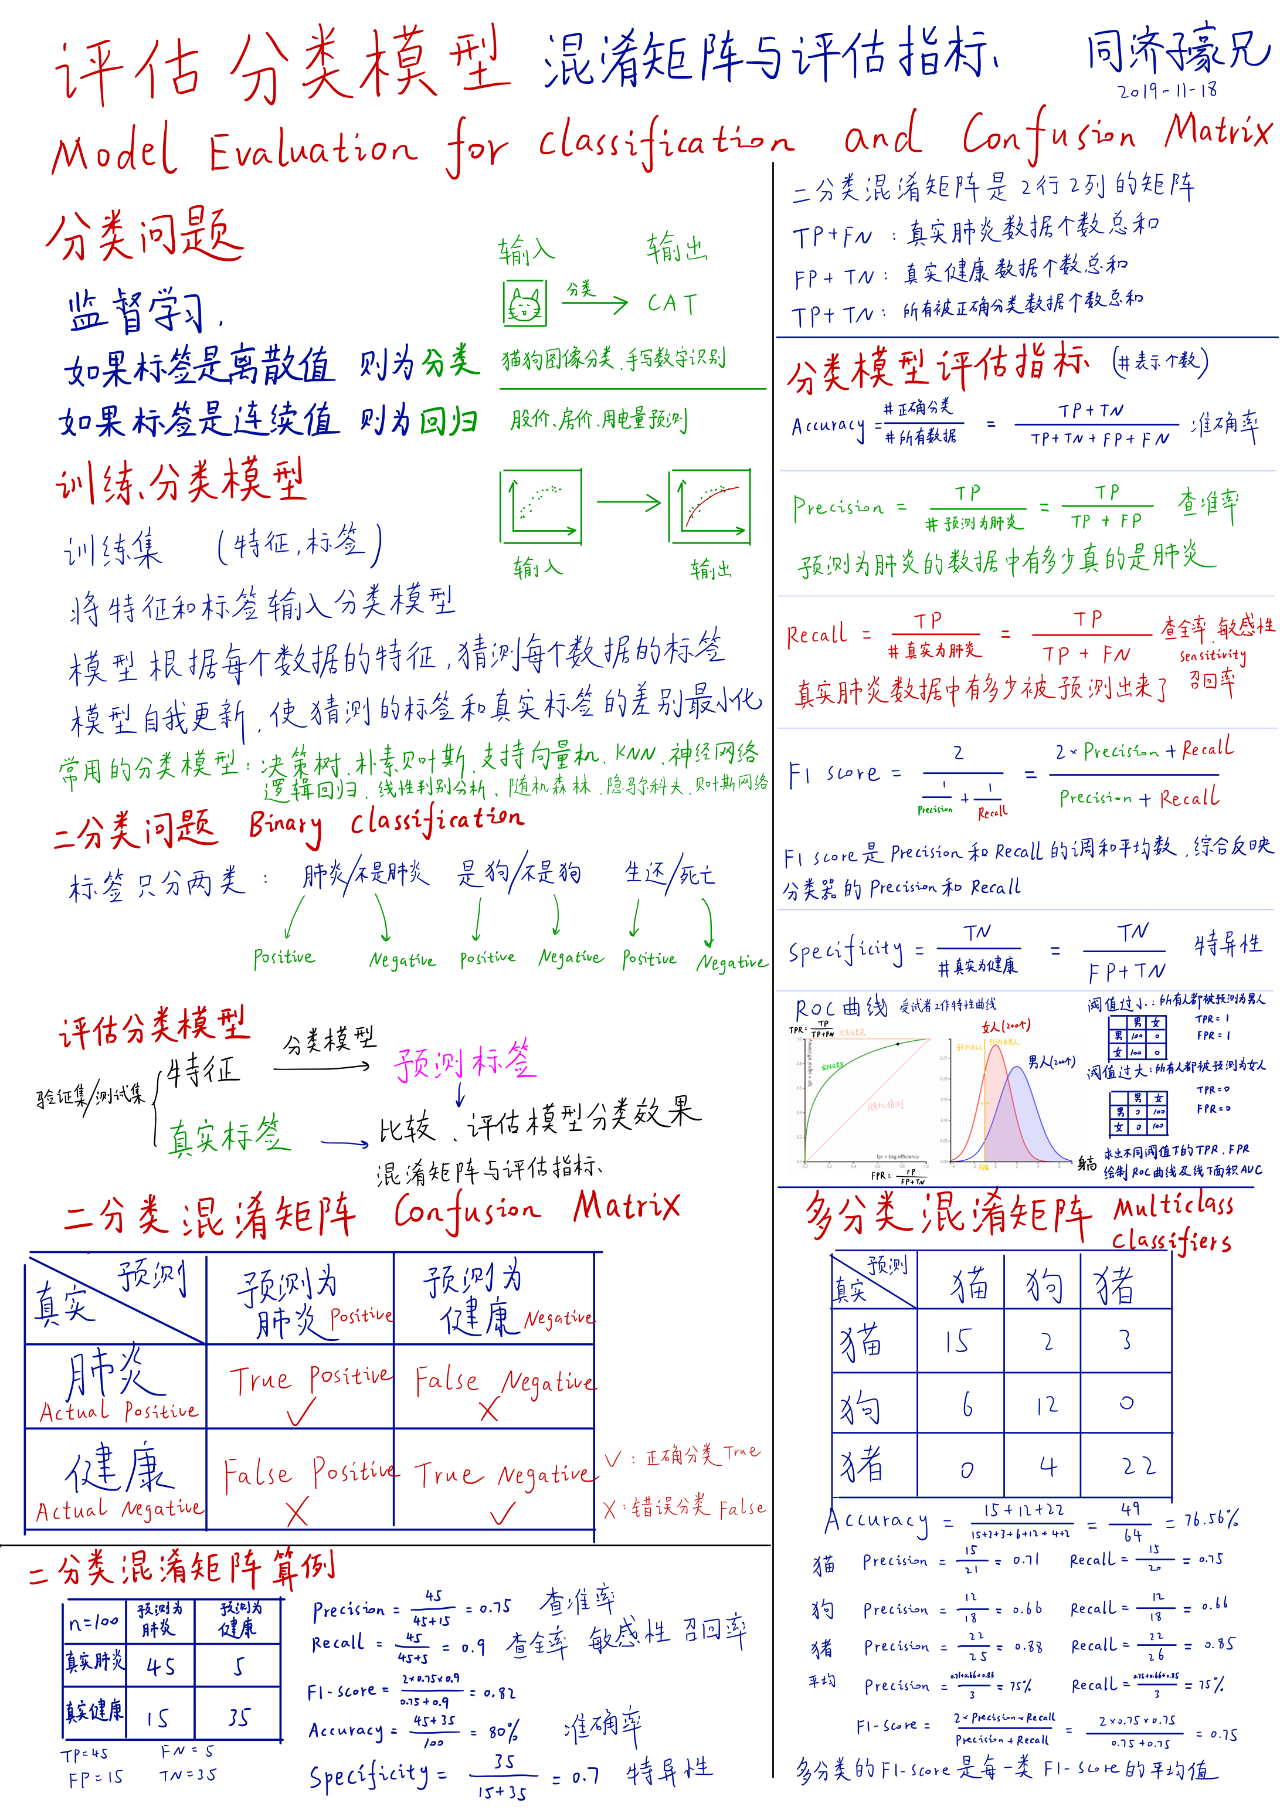 评估分类模型 混淆矩阵与评估指标 同济子豪兄
2019-11-18
Model Evaluation for classification and Confusion Matrix
分类问题
监督学习
如果标签是离散值 则为分类
如果标签是连续值 则为回归
输入 输出
分类 CAT
猫狗图像分类、手写数字识别
股价、房价、用电量预测
训练分类模型
训练集 (特征,标签)
将特征和标签输入分类模型
输入 输出
模型根据每个数据的特征,猜测每个数据的标签
模型自我更新,使猜测的标签和真实标签的差别最小化
常用的分类模型:决策树、朴素贝叶斯、支持向量机、KNN、神经网络
逻辑回归、线性判别分析、随机森林、隐马尔科夫、贝叶斯网络
二分类问题 Binary classification
标签只分两类: 肺炎/不是肺炎 是狗/不是狗 生还/死亡
Positive Negative Positive Negative Positive Negative
评估分类模型
验证集/测试集
特征 分类模型 预测标签
真实标签 比较、评估模型分类效果
混淆矩阵与评估指标
二分类混淆矩阵 Confusion Matrix
预测 真实
预测为肺炎 Positive
预测为健康 Negative
肺炎 Actual Positive
True Positive ✓
False Negative X
健康 Actual Negative
False Positive X
True Negative ✓
✓:正确分类 True
X:错误分类 False
二分类混淆矩阵算例
n=100 预测为肺炎 预测为健康
真实肺炎 45 5
真实健康 15 35
TP=45 FN=5
FP=15 TN=35
Precision = 45/(45+15) = 0.75 查准率
Recall = 45/(45+5) = 0.9 查全率 敏感性 召回率
F1-score = 2×0.75×0.9/(0.75+0.9) = 0.82
Accuracy = (45+35)/100 = 80% 准确率
Specificity = 35/(15+35) = 0.7 特异性
二分类混淆矩阵是2行2列的矩阵
TP+FN:真实肺炎数据个数总和
FP+TN:真实健康数据个数总和
TP+TN:所有被正确分类数据个数总和
分类模型评估指标 (#表示个数)
Accuracy = #正确分类/#所有数据 = (TP+TN)/(TP+TN+FP+FN) 准确率
Precision = TP/#预测为肺炎 = TP/(TP+FP) 查准率
预测为肺炎的数据中有多少真的是肺炎
Recall = TP/#真实为肺炎 = TP/(TP+FN) 查全率、敏感性
Sensitivity
召回率
真实肺炎数据中有多少被预测出来了
F1 score = 2/(1/Precision + 1/Recall) = (2×Precision+Recall)/(Precision+Recall)
F1 score是Precision和Recall的调和平均数,综合反映
分类器的Precision和Recall
Specificity = TN/#真实为健康 = TN/(FP+TN) 特异性
ROC曲线 受试者工作特性曲线
TPR = TP/(TP+FN)
随机猜测
fpr = bkg efficiency
FPR = FP/(FP+TN)
女人(200个)
男人(200个)
身高
阈值过小:所有人都被预测为男人
男 女
男 100 0
女 100 0
TPR=1
FPR=1
阈值过大:所有人都被预测为女人
男 女
男 0 100
女 0 100
TPR=0
FPR=0
求出不同阈值下的TPR、FPR
绘制ROC曲线及线下面积AUC
多分类混淆矩阵 Multiclass
classifiers
预测 真实 猫 狗 猪
猫 15 2 3
狗 6 12 0
猪 0 4 22
Accuracy = (15+12+22)/(15+2+3+6+12+4+2) = 49/64 = 76.56%
猫 Precision = 15/21 = 0.71 Recall = 15/20 = 0.75
狗 Precision = 12/18 = 0.66 Recall = 12/18 = 0.66
猪 Precision = 22/25 = 0.88 Recall = 22/26 = 0.85
平均 Precision = (0.71+0.66+0.88)/3 = 75% Recall = (0.75+0.66+0.85)/3 = 75%
F1-score = 2×Precision×Recall/(Precision+Recall) = 2×0.75×0.75/(0.75+0.75) = 0.75
多分类的F1-score是每一类F1-score的平均值